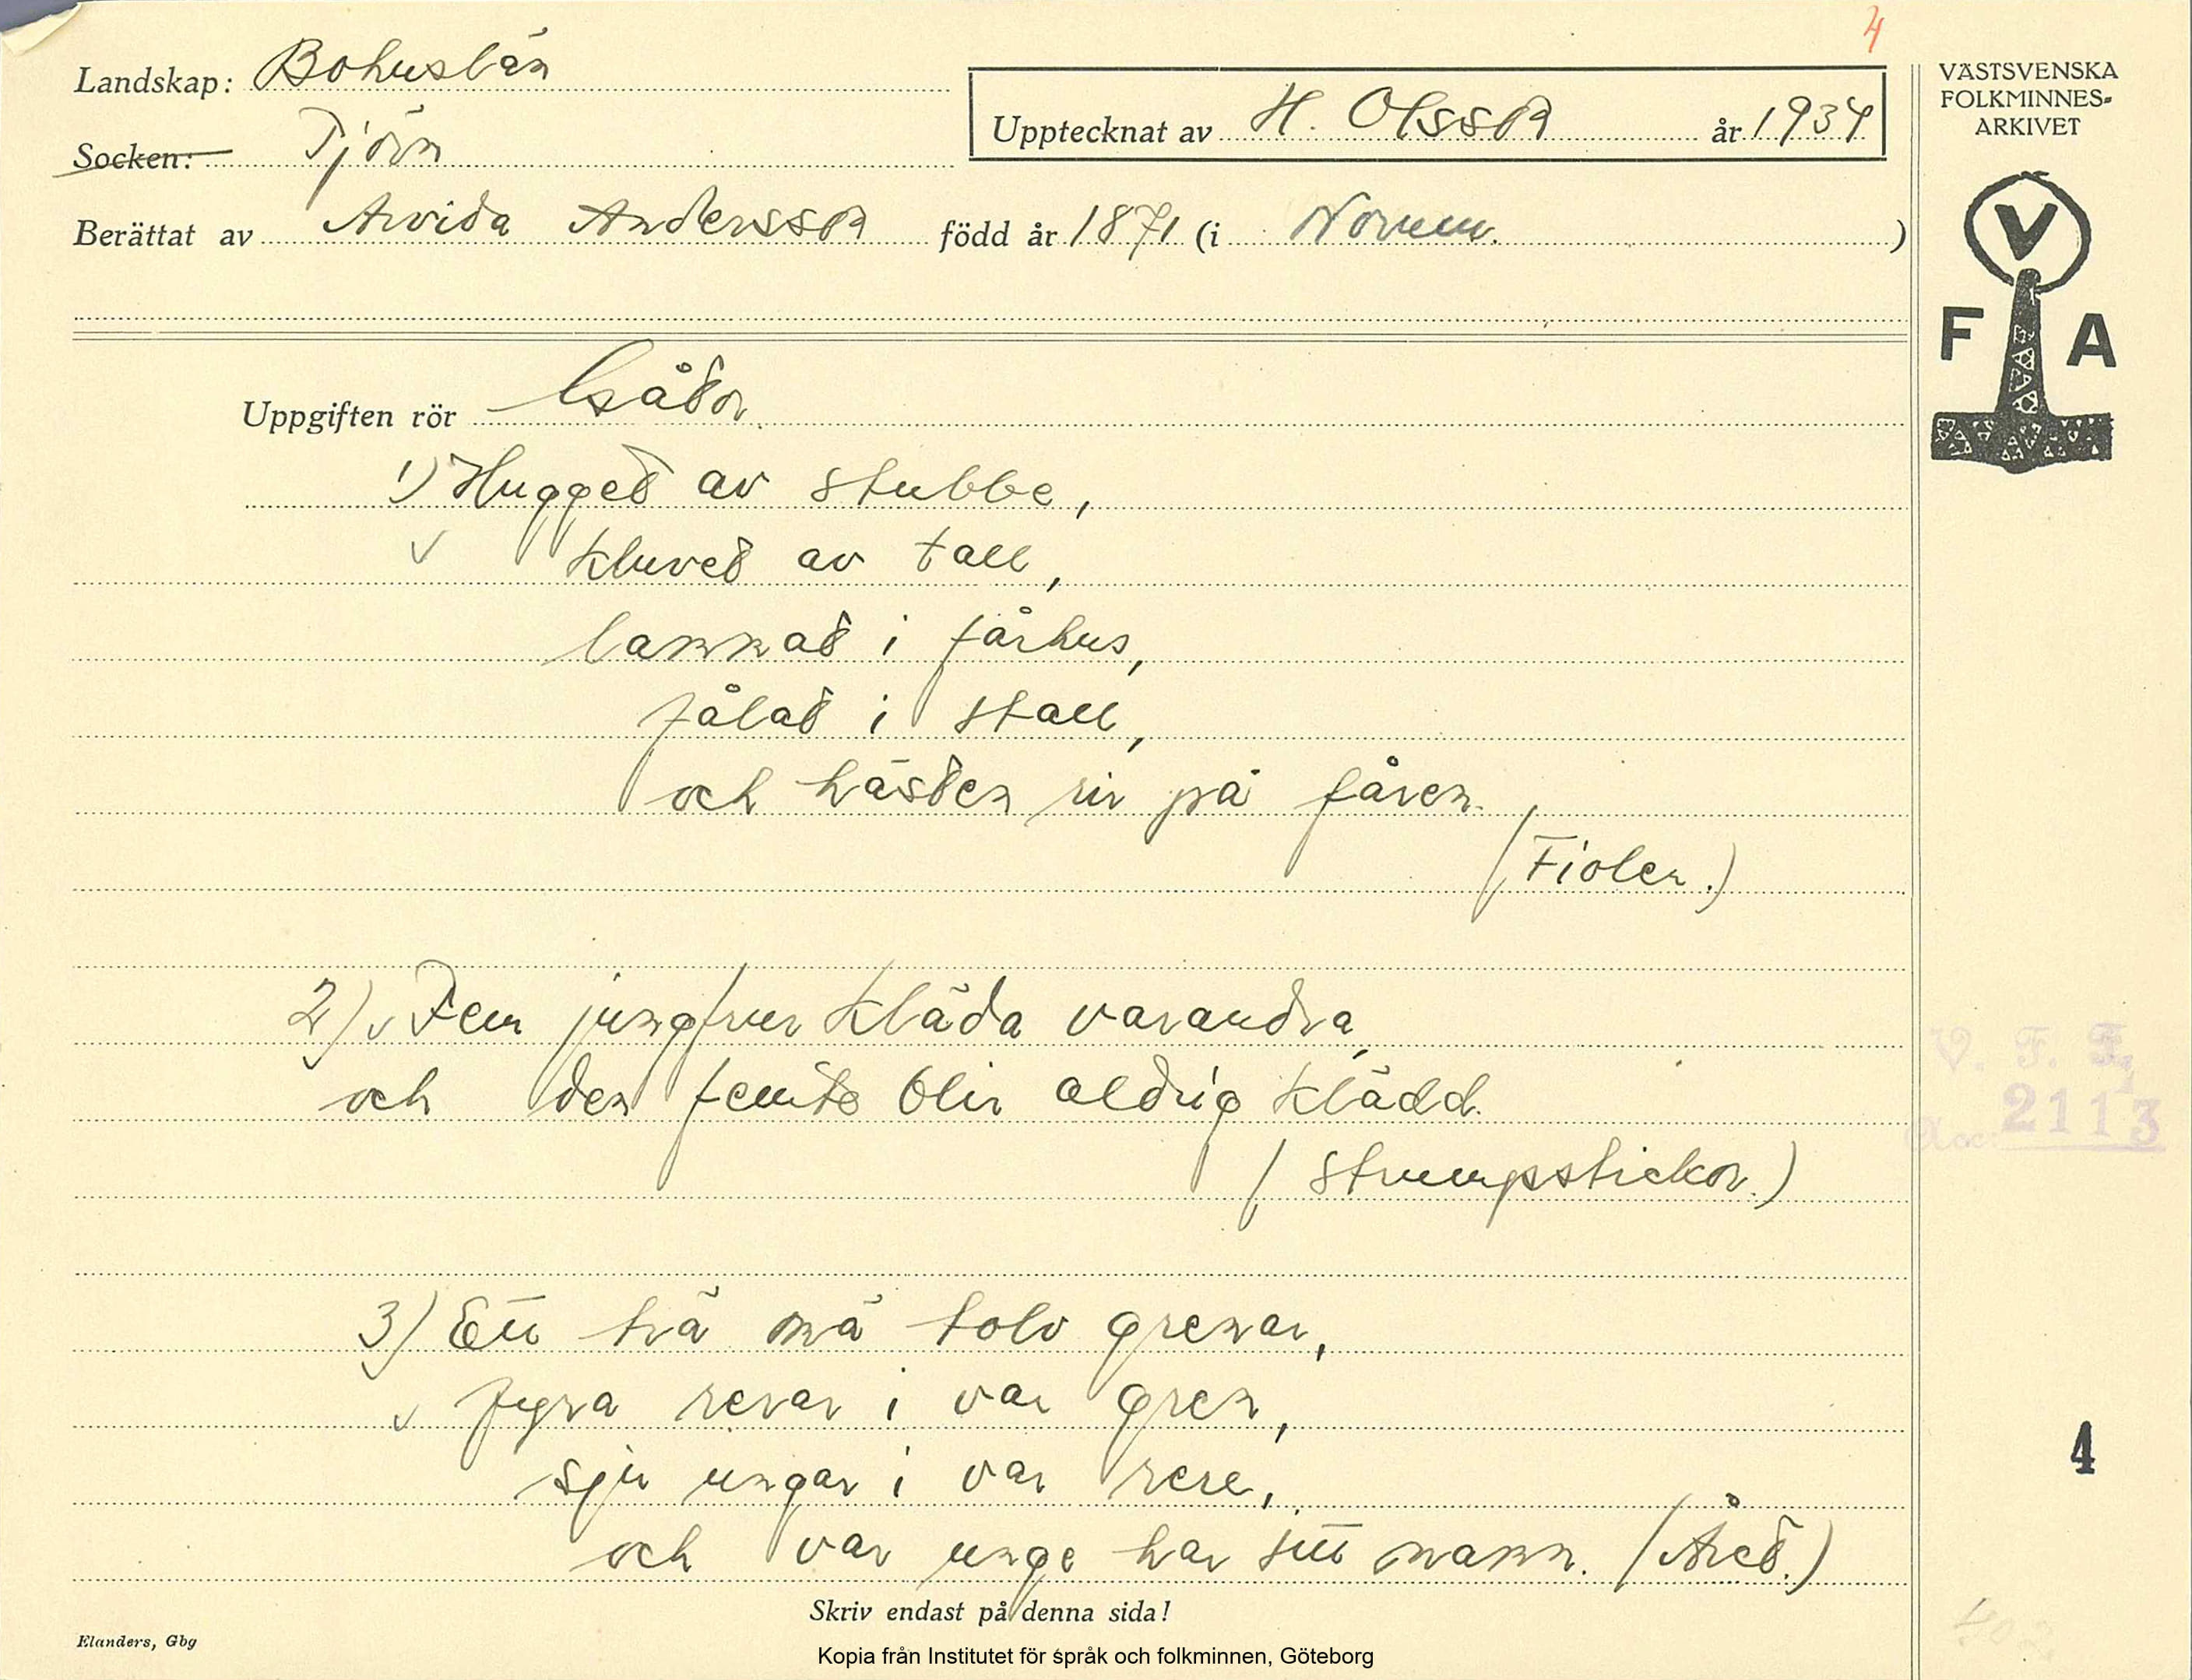 4
Landskap: Bohuslän
Socken: Tjörn
Upptecknat av H. Olsson år 1934
Berättat av Arvida Andersson född år 1871 (i Norum.)
VÄSTSVENSKA
FOLKMINNES-
ARKIVET
V
F A
Uppgiften rör Gåtor.
1) Hugget av stubbe,
kluvet av tall,
lammat i fårhus,
fålat i stall,
och hästen rir på fåren.
(Fiolen.)
2) Fem jungfrur kläda varandra,
och den femte blir aldrig klädd.
(Strumpstickor.)
3) Ett trä mä tolv grenar,
fyra rerar i var gren,
sju ungar i var rere,
och var unge har sitt namn. (Året.)
V. F. I.
Acc. 2113
4
Skriv endast på denna sida!
Elanders, Gbg
Kopia från Institutet för språk och folkminnen, Göteborg